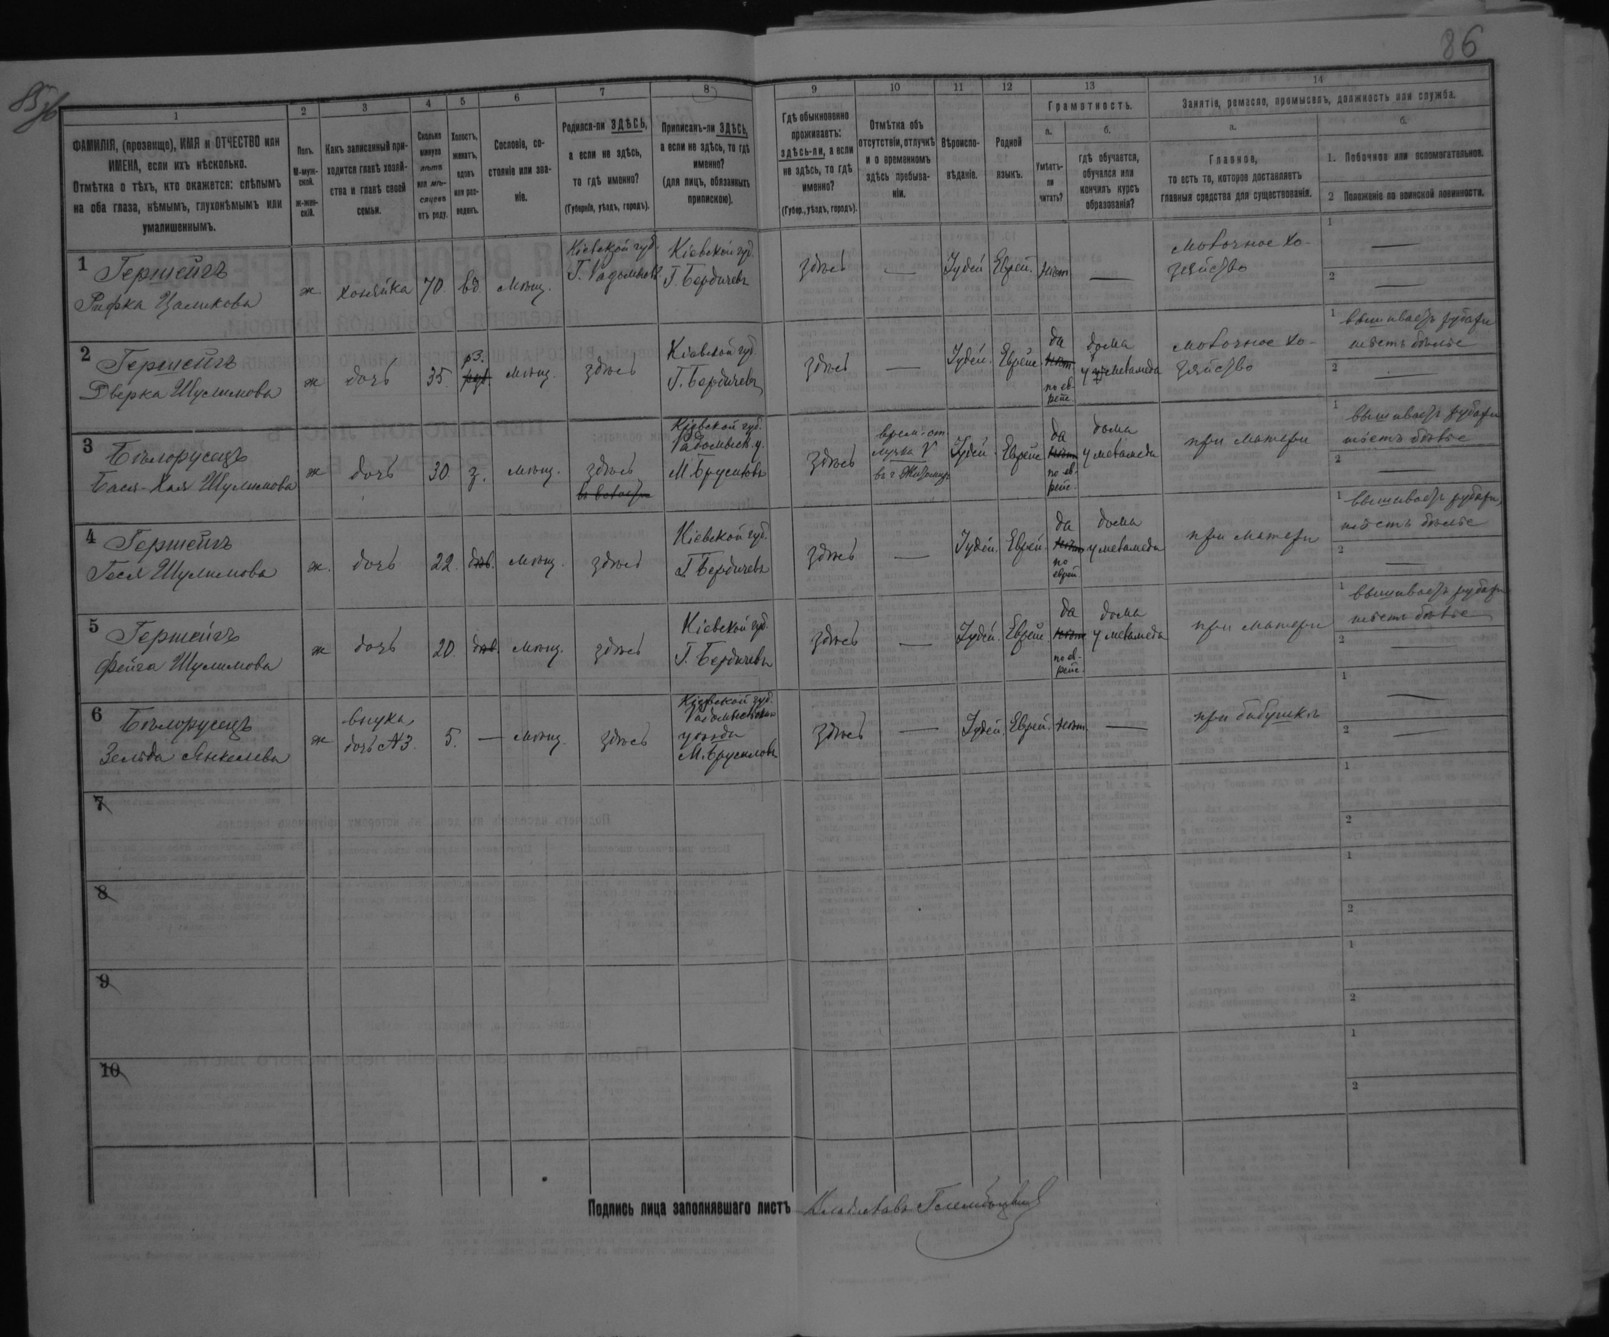 85об
86
1
2
3
4
5
6
7
8
9
10
11
12
13
14
ФАМИЛІЯ, (прозвище), ИМЯ и ОТЧЕСТВО или
ИМЕНА, если ихъ нѣсколько.
Отмѣтка о тѣхъ, кто окажется: слѣпымъ
на оба глаза, нѣмымъ, глухонѣмымъ или
умалишеннымъ.
Полъ.
М-муж-
ской.
Ж-жен-
скій.
Какъ записанный при-
ходится главѣ хозяй-
ства и главѣ своей
семьи.
Сколько
минуло
лѣтъ
или мѣ-
сяцевъ
отъ роду.
Холостъ,
женатъ,
вдовъ
или раз-
веденъ.
Сословіе, со-
стояніе или зва-
ніе.
Родился-ли ЗДѢСЬ,
а если не здѣсь,
то гдѣ именно?
(Губернія, уѣздъ, городъ).
Приписанъ-ли ЗДѢСЬ,
а если не здѣсь, то гдѣ
именно?
(для лицъ, обязанныхъ
припискою).
Гдѣ обыкновенно
проживаетъ:
здѣсь-ли, а если
не здѣсь, то гдѣ
именно?
(Губер., уѣздъ, городъ).
Отмѣтка объ
отсутствіи, отлучкѣ
и о временномъ
здѣсь пребыва-
ніи.
Вѣроиспо-
вѣданіе.
Родной
языкъ.
Грамотность.
а.
Умѣетъ-
ли
читать?
б.
гдѣ обучается,
обучался или
кончилъ курсъ
образованія?
Занятіе, ремесло, промыселъ, должность или служба.
а.
Главное,
то есть то, которое доставляетъ
главныя средства для существованія.
б.
1. Побочное или вспомогательное.
2 Положеніе по воинской повинности.
1 Гершейгъ
Рифка Цаликова
ж
хозяйка
70
вд
мѣщ.
Кіевской губ.
Кіевской губ.
Г. Бердичевъ
здѣсь
—
Іудей
Еврей.
нѣт
—
молочное хо-
зяйство
1 —
2 —
2 Гершейгъ
Дверка Шулимова
ж
дочь
35
рз.
мѣщ.
здѣсь
Кіевской губ
Г. Бердичевъ
здѣсь
—
Іудей.
Еврейс
да
нѣт
по ев-
рейс
дома
у меламеда
молочное хо-
зяйство
1
2 —
3 Бѣлорусецъ
Бася-Хая Шулимова
ж
дочь
30
з.
мѣщ.
здѣсь
Кіевской губ.
Радомысл. у.
М. Брусиловъ
здѣсь
Іудей
Еврейс
да
нѣт
по ев-
рейс.
дома
у меламеда
при матери
1
2 —
4 Гершейгъ
Геся Шулимова
ж.
дочь
22.
дѣв.
мѣщ.
здѣсь
Кіевской губ
Г Бердичевъ
здѣсь
—
Іудей.
Еврей.
да
нѣт
по
еврей
дома
у меламеда
при матери
1
2 —
5 Гершейгъ
Фейга Шулимова
ж
дочь
20.
дѣв.
мѣщ.
здѣсь
Кіевской губ
Г. Бердичевъ
здѣсь
—
Іудей.
Еврейс
да
нѣт
по ев-
рейс.
дома
у меламеда
при матери
1
2 —
6 Бѣлорусецъ
Зельда Янкелева
ж
внука,
дочь №3.
5.
—
мѣщ.
здѣсь
Кіевской губ.
уѣзда
М. Брусиловъ
здѣсь
—
Іудей.
Еврей.
нѣт.
—
при бабушкѣ
1 —
2 —
7
1
2
8
1
2
9
1
2
10
1
2
Подпись лица заполнявшаго листъ